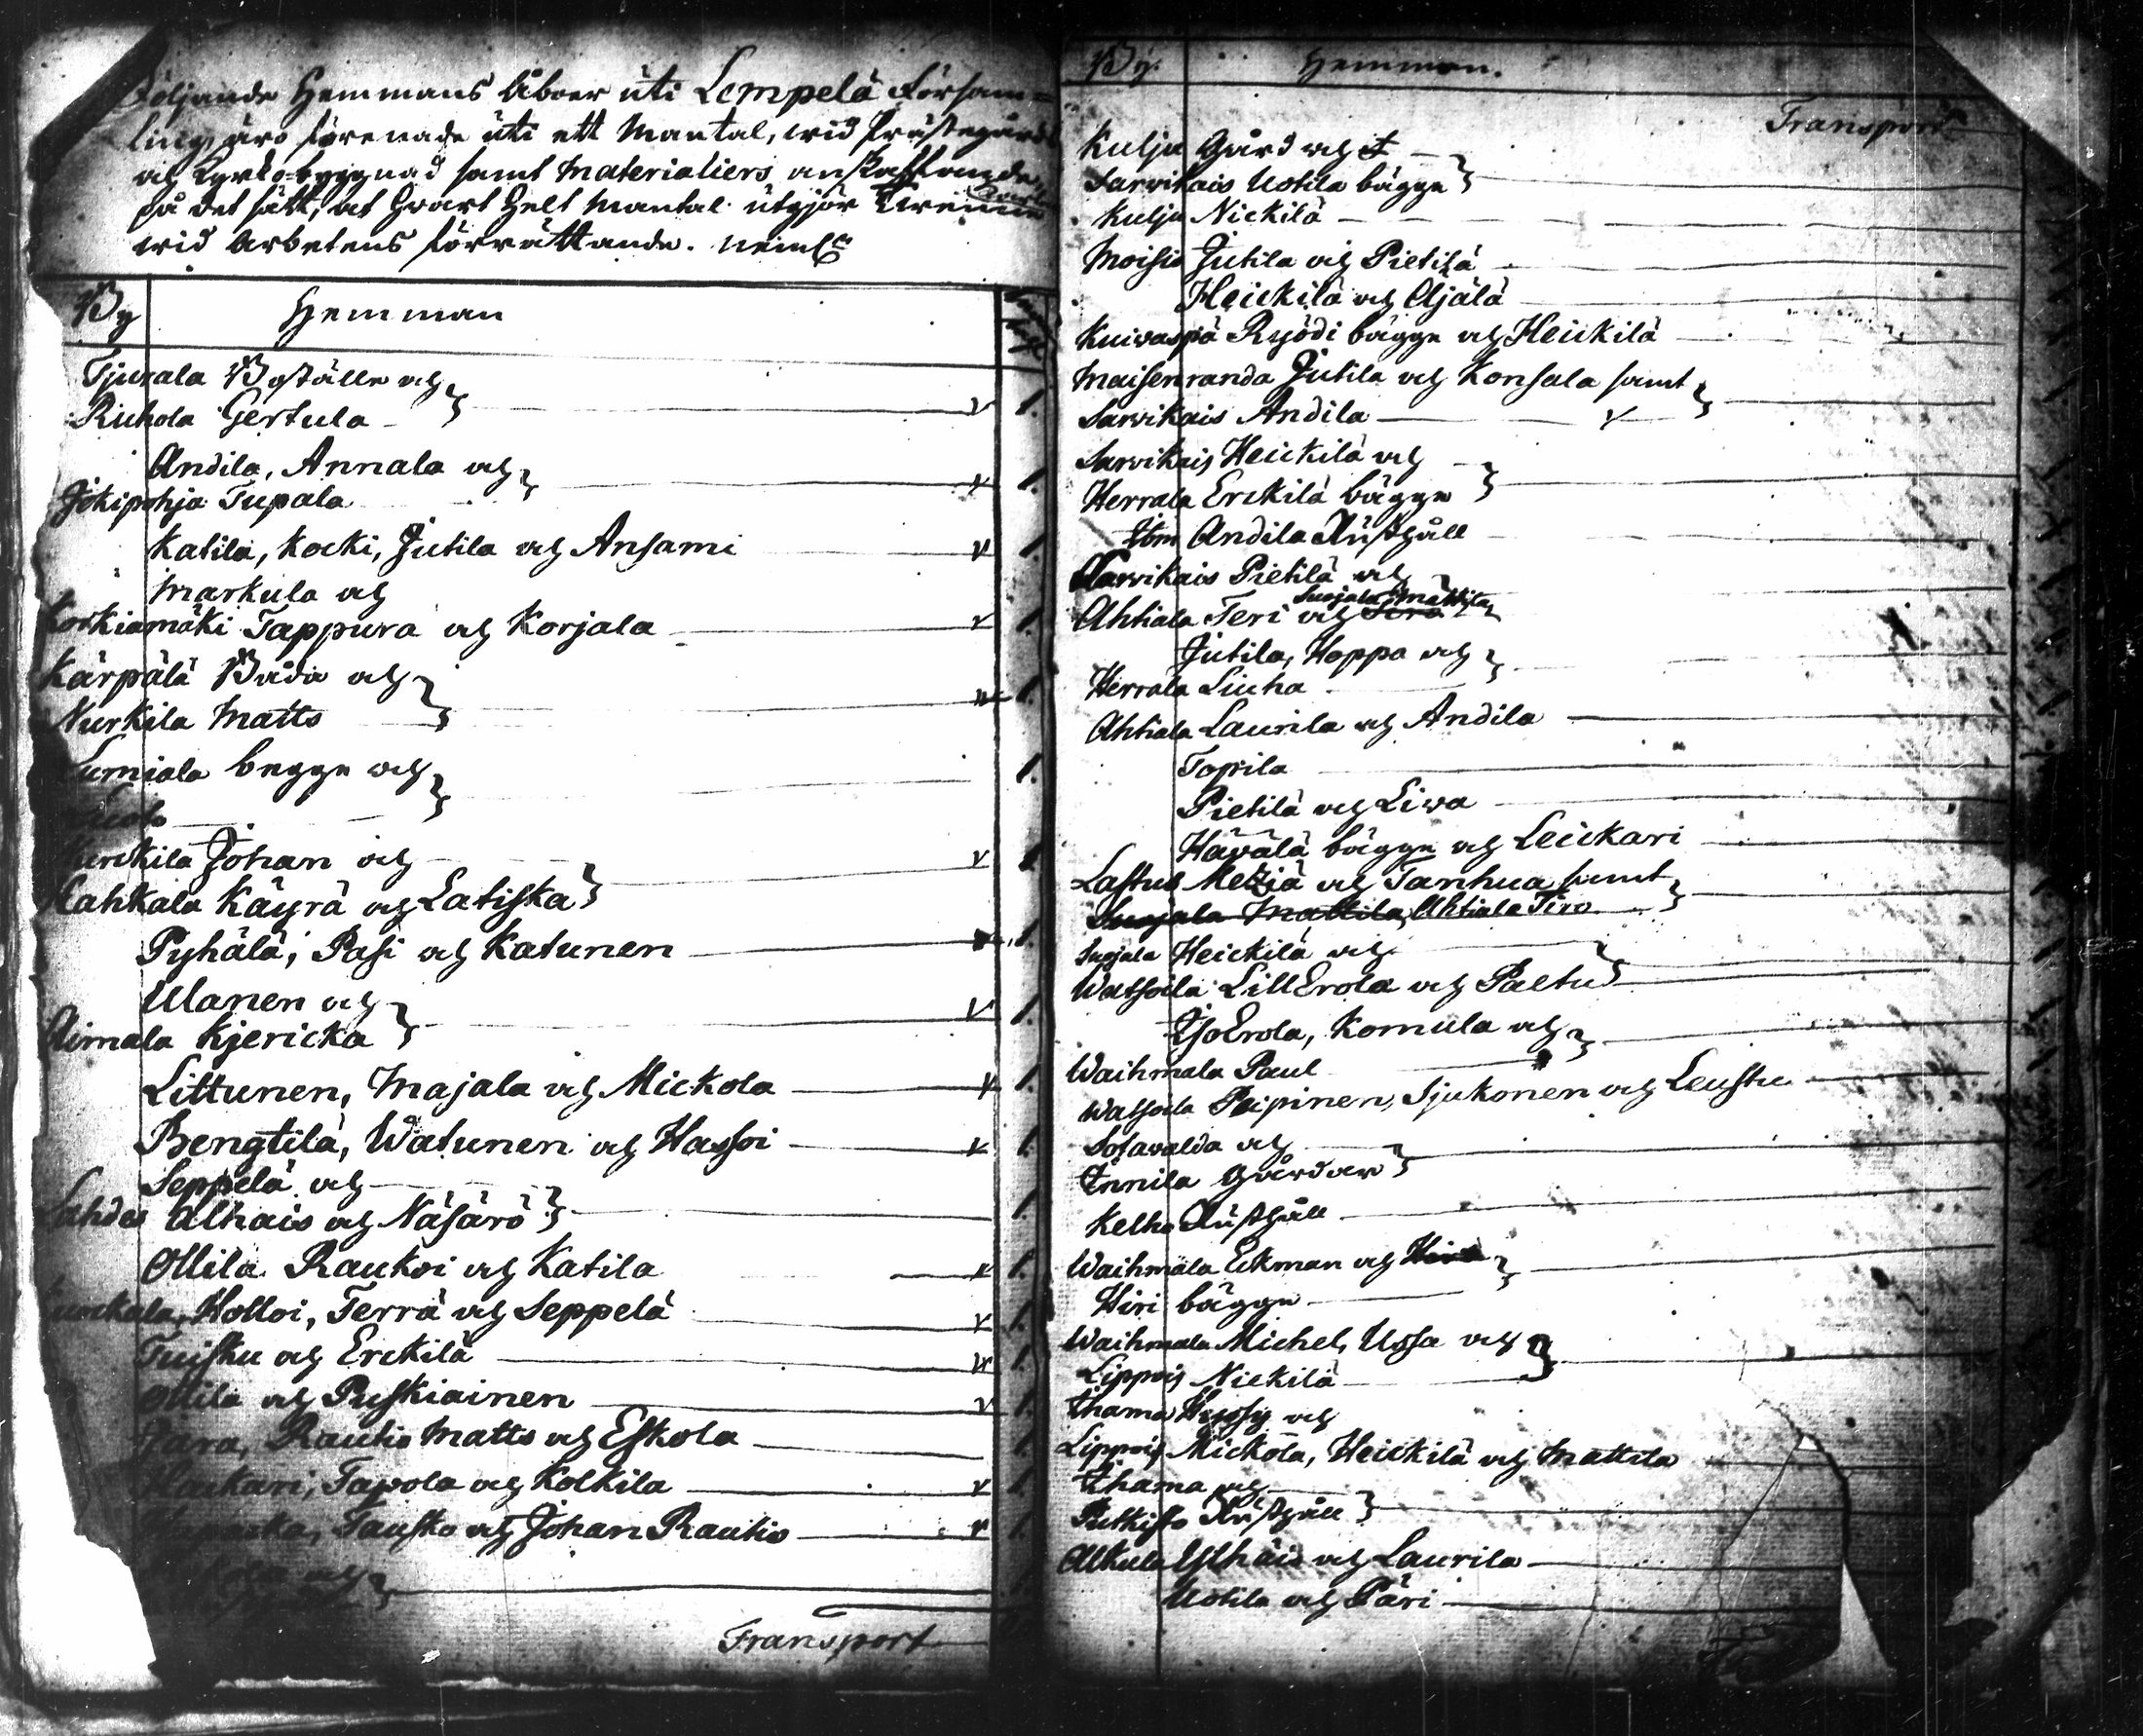 Följande Hemmans Åboer uti Lempelä Församling
äro förenade uti ett Mantal, wid Prästegårds
och Kyrko-byggnad samt Materialiers anskaffande,
på det sätt, at hwart helt Mantal utgör
wid Arbetens förrättande. neml:
By Hemman
Tjurala Boställe och
Kuhola Gertula
Andila, Annala och
Jokipohja Tupala
Katila, Kocki, Jutila och Ansami
Markula och
Korkiamäki Tappura och Korjala
Kärpälä Båda och
Nurkila Matts
Lumiala begge och
Johan och
Käyrä och Latiska
Pyhälä, Pasi och Katunen
Ulanen och
Aimala Kjericka
Littunen, Majala och Mickola
Bengtilä, Watunen och Hassoi
Seppelä och
Lahdes Alhais och Näsärö
Ollila Raukoi och Katila
Holloi, Terrä och Seppelä
Tuisku och Erckilä
Ollila och Puskiainen
Rautio Matts och Eskola
Tapola och Kolkila
Tausko och Johan Rautio
Transport
By. Hemman.
Transport
Kulju Gård och
Sarvikais Uotila bägge
Kulju Nickilä
Moisio Jutila och Pietilä
Heickilä och Äjälä
Kuivaspä Ryödi bägge och Heickilä
Maisenranda Jutila och Konsala samt
Sarvikais Andila
Sarvikais Heickilä och
Herrala Erckilä bägge
Ibm Andila Rusthåll
Sarvikais Pietilä och
Suojala Mattila
Ahtiala Teri och
Jutila, Hoppa och
Herrala Liuha
Ahtiala Laurila och Andila
Topila
Pietilä och Liwa
Häwälä bägge och Leickari
Lastus Metzjä och Tanhua samt
Suojala Mattila, Ahtiala Tiro
Suojala Heickilä och
Watsoila LillErola och Paltu
IsoErola, Komula och
Waihmala Paul
Watsoila Peipinen, Sjukonen och Leustu
Sotavalda och
Innila Gårdar
Kelho Rusthåll
Waihmala Eckman och
Hiri bägge
Waihmala Michel, Ussa och
Lippois Nickilä
Ihama Hyssy och
Lippois Mickola, Heickilä och Mattila
Ihama och
Putkisto Rusthåll
Alkula Ylhäis och Laurila
Uotila och Päri